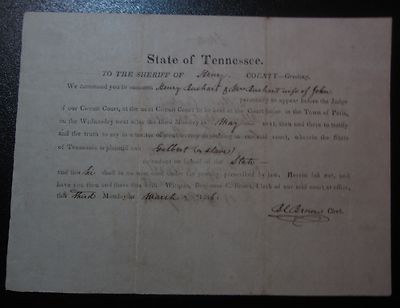 State of Tennessee.
TO THE SHERIFF OF Henry COUNTY—Greeting.
We command you to summon Henry & Mrs wife of John
personally to appear before the Judge
of our Circuit Court, at the next Circuit Court to be held at the Court-house in the Town of Paris,
on the Wednesday next after the third Monday in May next, then and there to testify
and the truth to say in a certain of controversy depending in our said court, wherein the State
of Tennessee is plaintiff and Gilbert (a slave)
defendant on behalf of the State
and this he shall in no wise omit under the penalty prescribed by law. Herein fail not, and
have you then and there this Writ. Witness, Benjamin C. Clerk of our said court at office,
this Third Monday of March
Clerk.